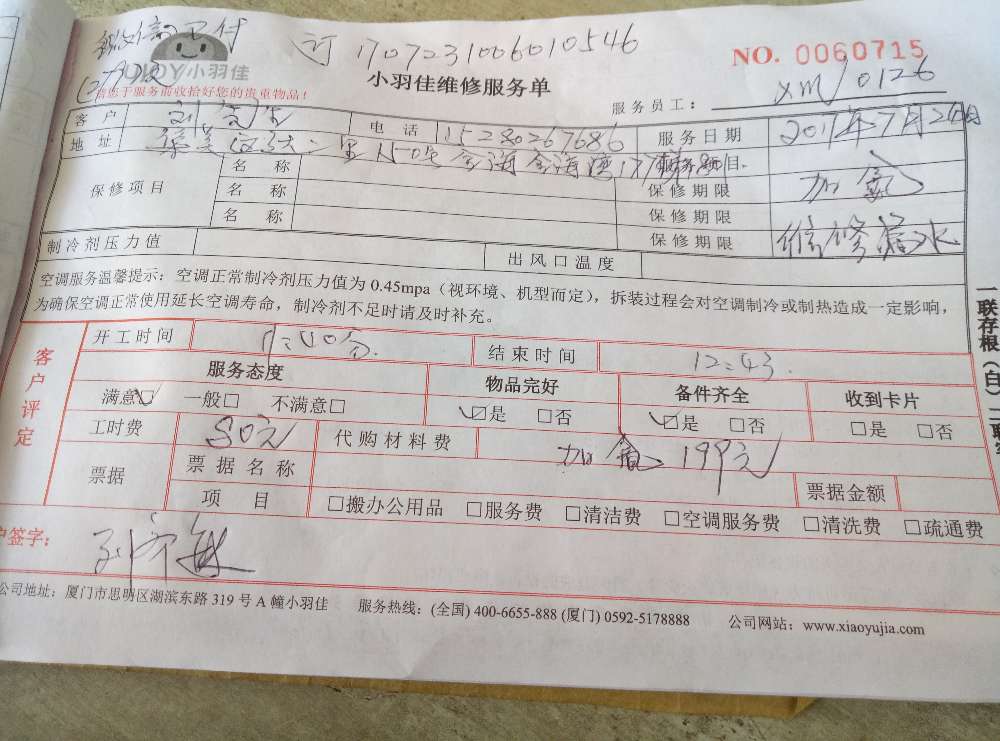 微信已付
订 1707231006010546
NO. 0060715
小羽佳
小羽佳维修服务单
请您于服务前收拾好您的贵重物品!
服务员工: xm/0126
客户 刘
电话 15280267686
服务日期 2017年7月24日
地址 集美 里150号
服务项目 加氟
保修项目
名称 保修期限 维修漏水
名称 保修期限
名称 保修期限
制冷剂压力值 出风口温度
空调服务温馨提示: 空调正常制冷剂压力值为 0.45mpa (视环境、机型而定), 拆装过程会对空调制冷或制热造成一定影响,
为确保空调正常使用延长空调寿命, 制冷剂不足时请及时补充。
一联存根(白) 二联
客户评定
开工时间
结束时间 12:43
服务态度 物品完好 备件齐全 收到卡片
满意☑ 一般□ 不满意□ ☑是 □否 ☑是 □否 □是 □否
工时费 80元 代购材料费 加氟 199元
票据 票据名称 票据金额
项目 □搬办公用品 □服务费 □清洁费 □空调服务费 □清洗费 □疏通费
户签字:
公司地址: 厦门市思明区湖滨东路 319 号 A 幢小羽佳 服务热线: (全国) 400-6655-888 (厦门) 0592-5178888 公司网站: www.xiaoyujia.com